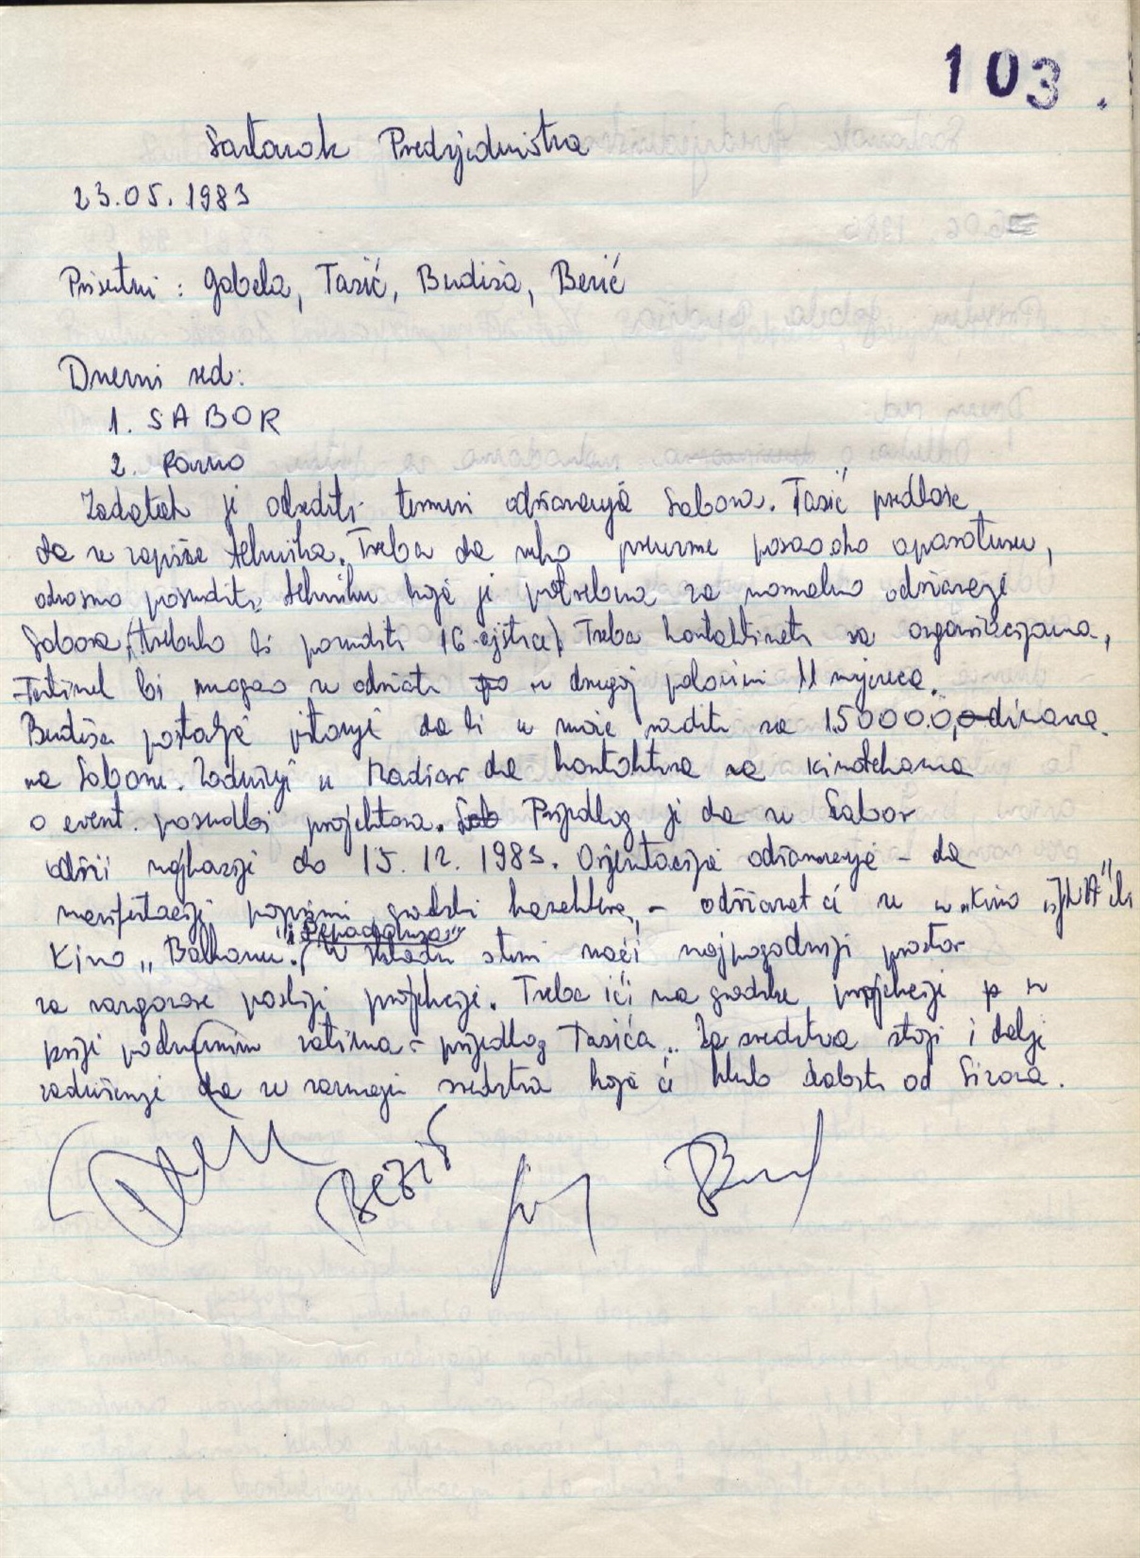 103.
Sastanak Predsjedništva
23.05.1983
Prisutni : Gabela, Tasić, Budiša, Bezić
Dnevni red:
1. SABOR
2. Razno
Zadatak je odrediti termin održavanja Sabora. Tasić predlaže
da se zapiše tehnika. Treba da neko preuzme posao oko aparature,
odnosno posuditi tehniku koja je potrebna za normalno održavanje
Sabora, (trebalo bi posuditi 16-ejstice). Treba kontaktirati sa organizacijama,
Festival bi mogao se održati u drugoj polovini 11 mjeseca.
Budiša postavlja pitanje da li se može raditi sa 150000,0 dinara
na Saboru. Zadužuje se da kontaktira sa kinotekama
o event. posudbi projektora. Sab Prijedlog je da se Sabor
održi najkasnije do 15.12.1983. Orjentacija održavanja - da
manifestacija poprimi gradski karakter, - održavat će se u „Kino „JNA" ili
Kino „Balkanu". U skladu s tim naći najpogodniji prostor
za razgovore poslije projekcije. Treba ići na gradske projekcije p u
prije podnevnim satima - prijedlog Tasića. Za sredstva stoji i dalje
zaduženje da se razmijene sredstva koja će klub dobiti od Siza.
Bezić